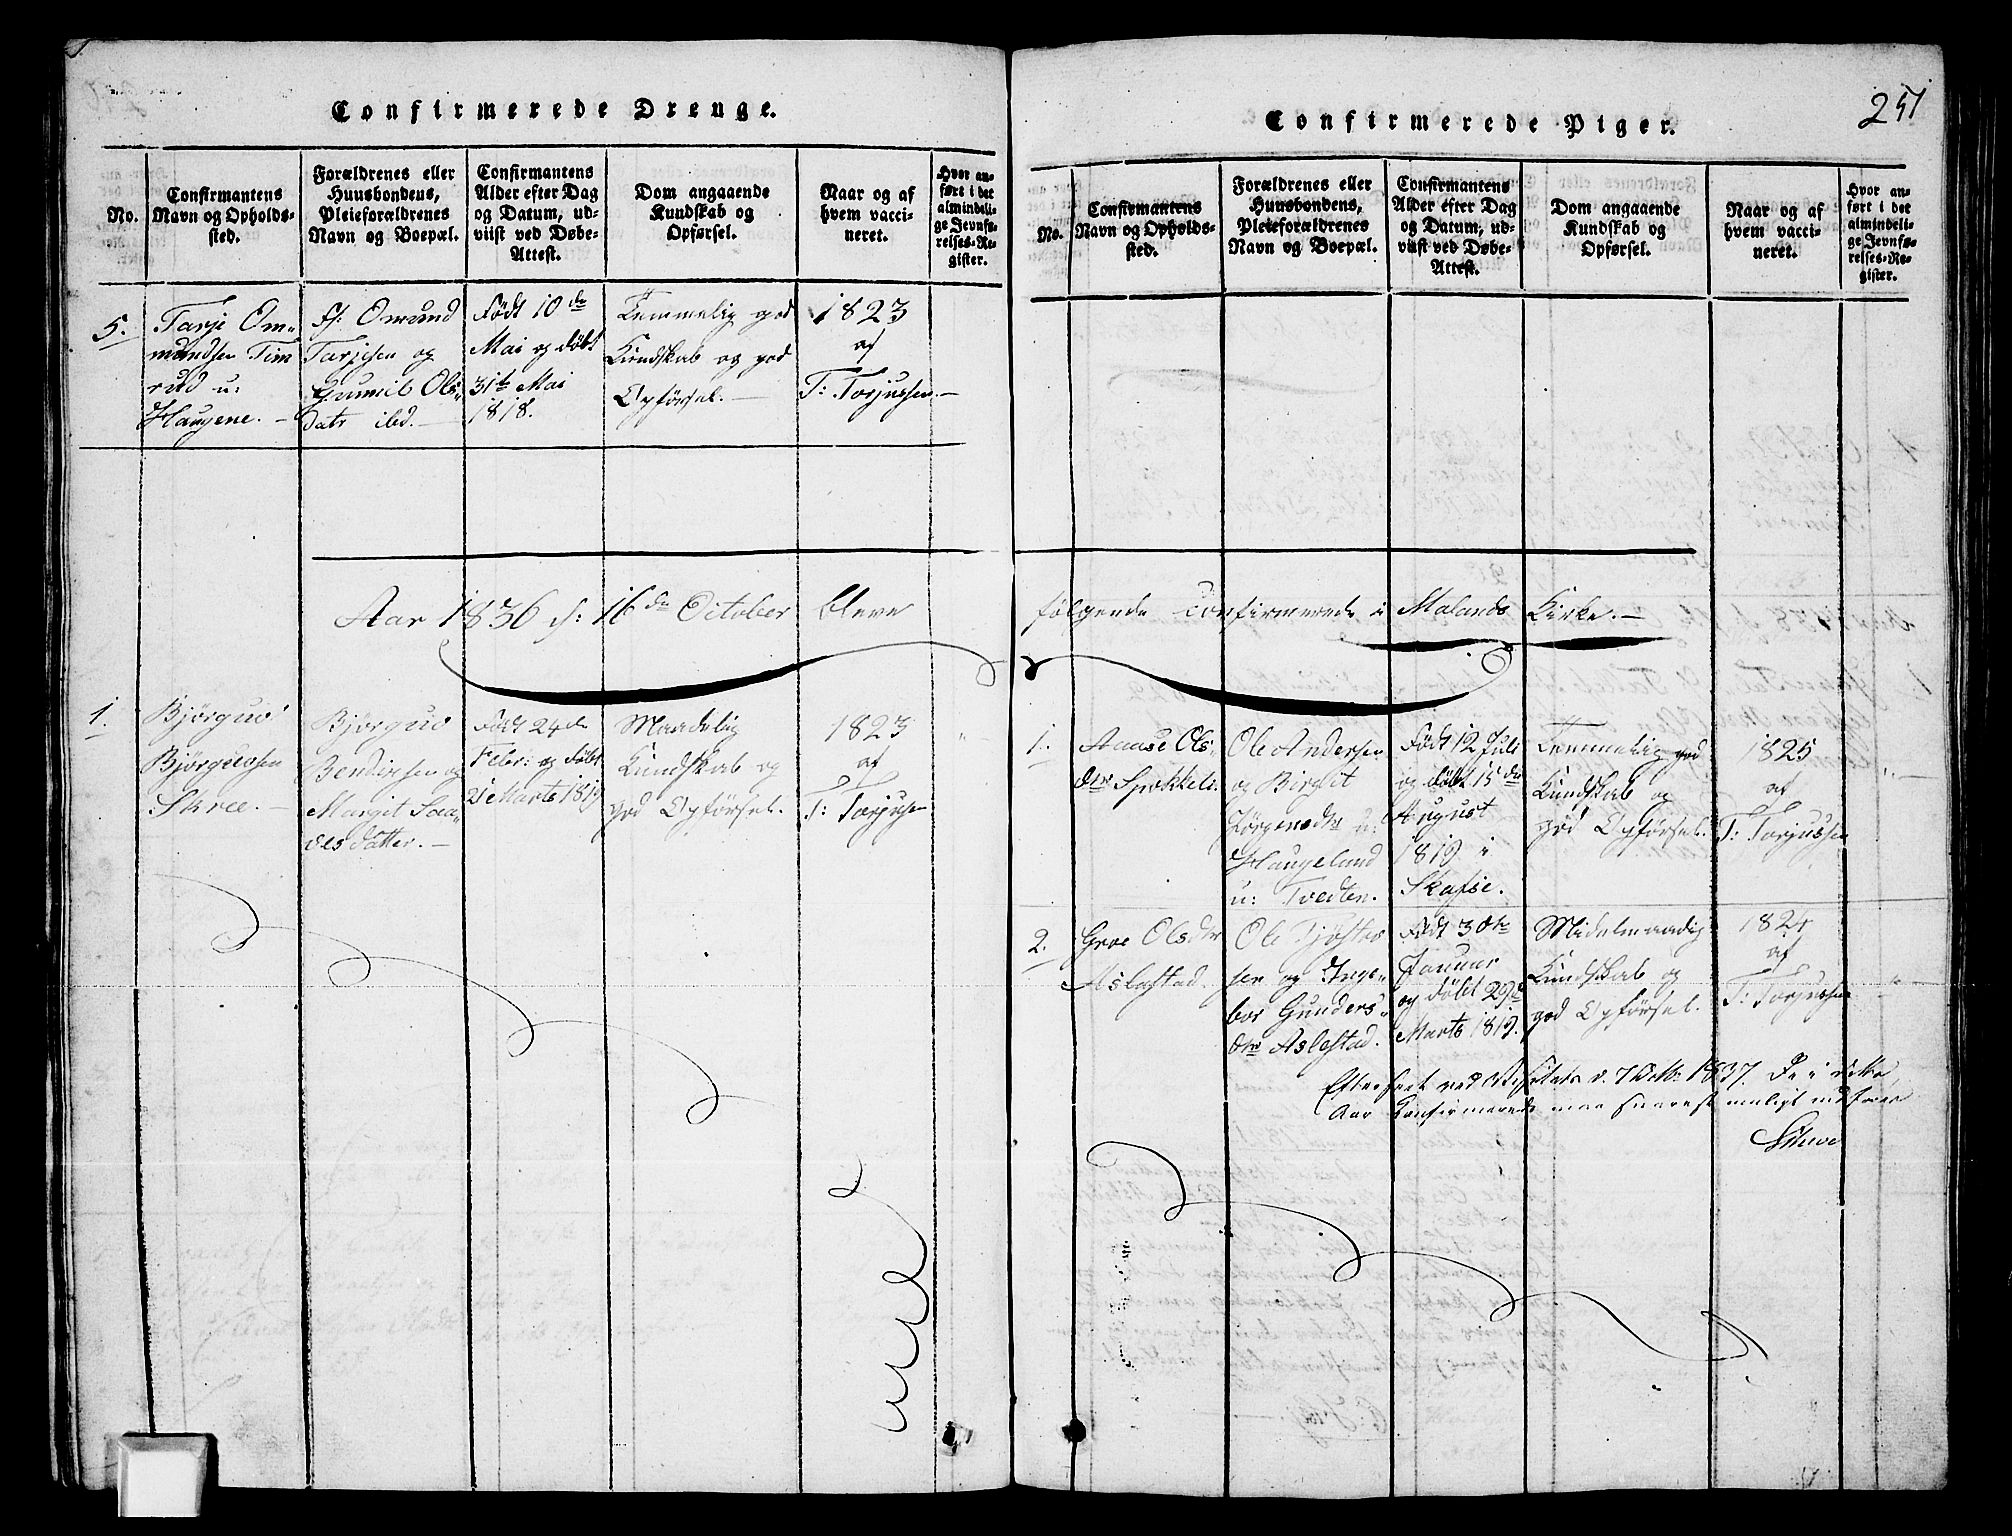 Confirmerede Drenge.
No.
Confirmantens
Navn og Opholds-
sted.
Forældrenes eller
Huusbondens,
Pleieforældrenes
Navn og Boepæl.
Confirmantens
Alder efter Dag
og Datum, ud-
viist ved Døbe-
Attest.
Dom angaaende
Kundskab og
Opførsel.
Naar og af
hvem vacci-
neret.
Hvor an-
ført i det
almindeli-
ge Jevnfø-
relses-Re-
gister.
5.
Tarje Om-
mundsen Tim
rud u:
Haugene. —
F: Omund
Tarjesen og
Gunnil Ols-
datr ibd. —
Født 10de
Mai og døbt
31te Mai
1818.
Temmelig god
Kundskab og god
Opførsel. —
1823
af
T: Torjussen. —
Aar 1836 d: 16de October bleve
1.
Bjørguv
Bjørguvsen
Skree. —
Bjørguv
Bendixsen og
Margit Saa-
desdatter. —
Født 24de
Febr: og døbt
21 Marts 1819
Maadelig
Kundskab og
god Opførsel.
1823
af
T: Torjusen
251
Confirmerede Piger.
No.
Confirmantens
Navn og Opholds-
sted.
Forældrenes eller
Huusbondens,
Pleieforældrenes
Navn og Boepæl.
Confirmantens
Alder efter Dag
og Datum, ud-
viist ved Døbe-
Attest.
Dom angaaende
Kundskab og
Opførsel.
Naar og af
hvem vacci-
neret.
Hvor an-
ført i det
almindeli-
ge Jevnfø-
relses-Re-
gister.
følgende confirmerede i Molands Kirke. —
1.
Aase Ols-
dtr
Ole Andersen
og Birgit
Jørgensdtr u:
Haugeland
u: Tvedten.
Født 12 Juli
og døbt 15de
August
1819 i
Skafse.
Temmelig god
Kundskab og
god Opførsel.
1825
af
T: Torjussen
2.
Groe Olsdtr
Aslestad.
Ole Tjøstos
sen og Inge-
bor Gunders-
dtr Aslestad.
Født 3die
Januar
og døbt 29de
Marts 1819.
Midelmaadig
Kundskab og
god Opførsel.
182
af
T: Torjussen
Efterseet ved Visitats d. 7 1837. De i dette
Aar Confirmerede maa snarest muligt indføres